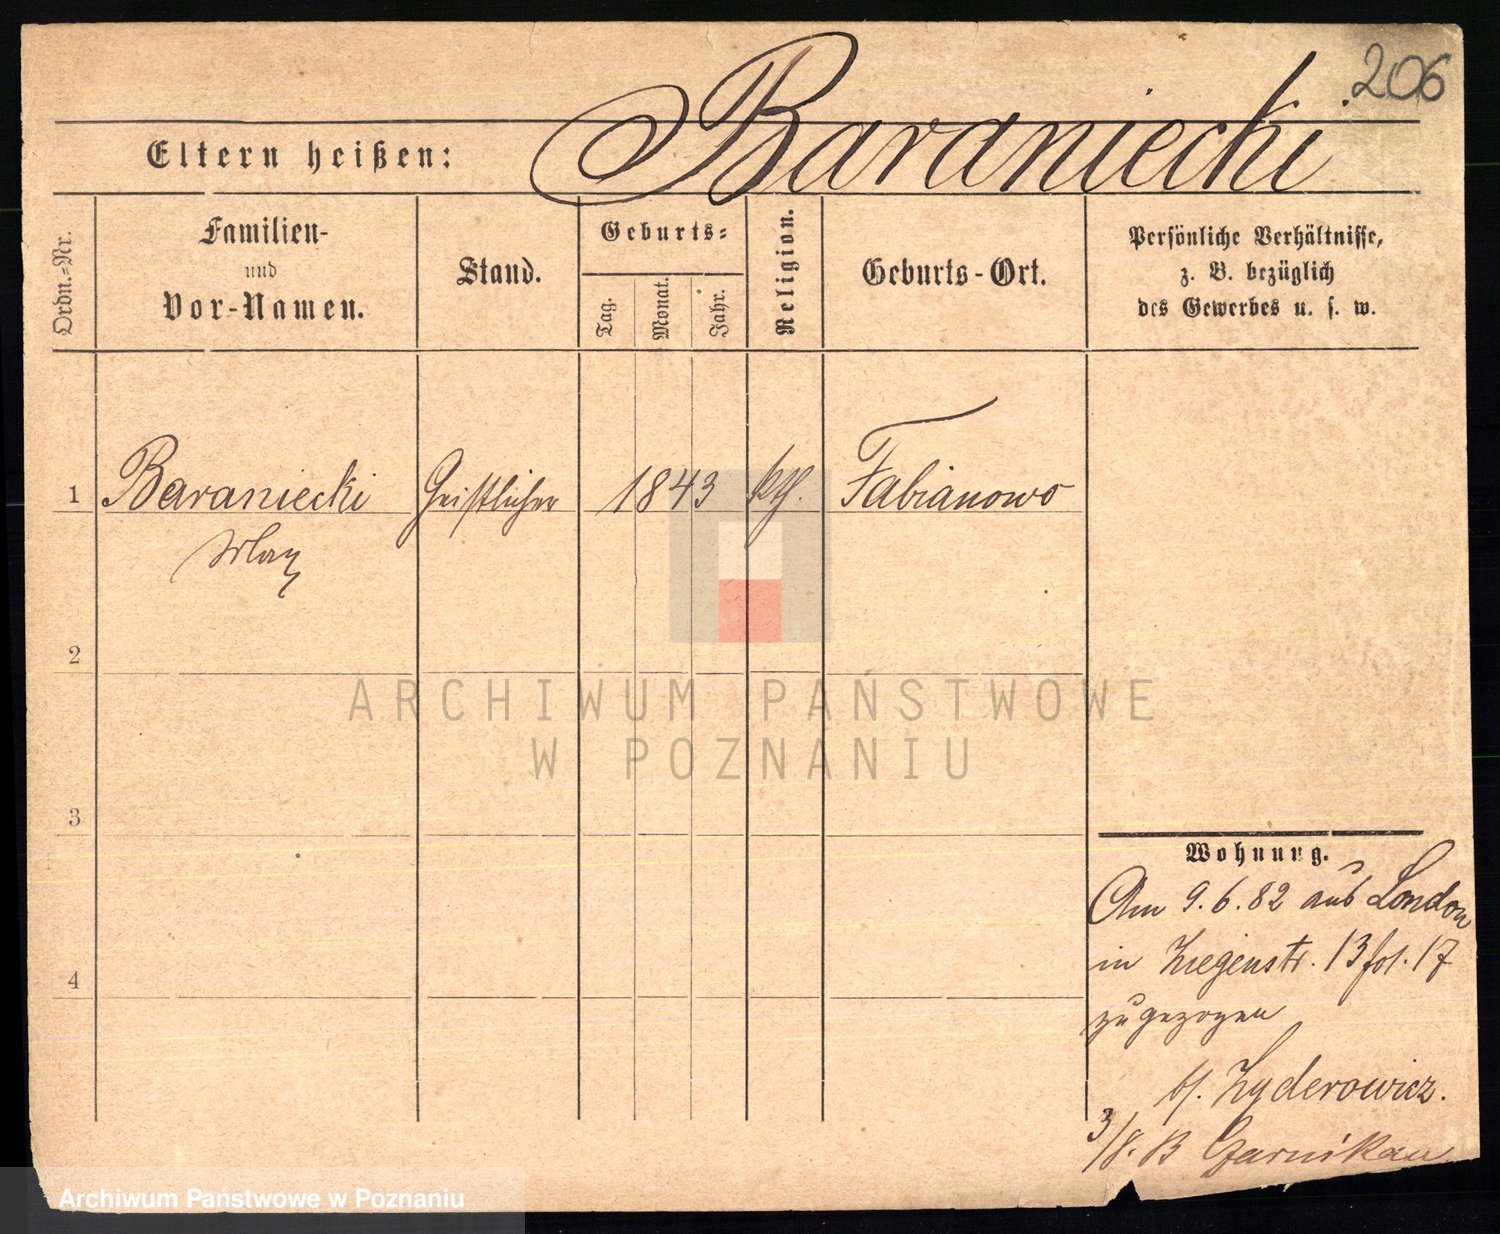 206
Eltern heißen: Baraniecki
Ordn.=Nr.
Familien-
und
Vor-Namen.
Stand.
Geburts=
Tag.
Monat.
Jahr.
Religion.
Geburts-Ort.
Persönliche Verhältnisse,
z. B. bezüglich
des Gewerbes u. s. w.
1 Baraniecki Geistlicher 1843 kth. Fabianowo
2
3
4
Wohnung.
Am 9.6.82 aus London
in Ziegenstr. 13 fol. 17
zugezogen
b/. Zyderowicz.
3/8. B Czarnikau
ARCHIWUM PAŃSTWOWE
W POZNANIU
Archiwum Państwowe w Poznaniu